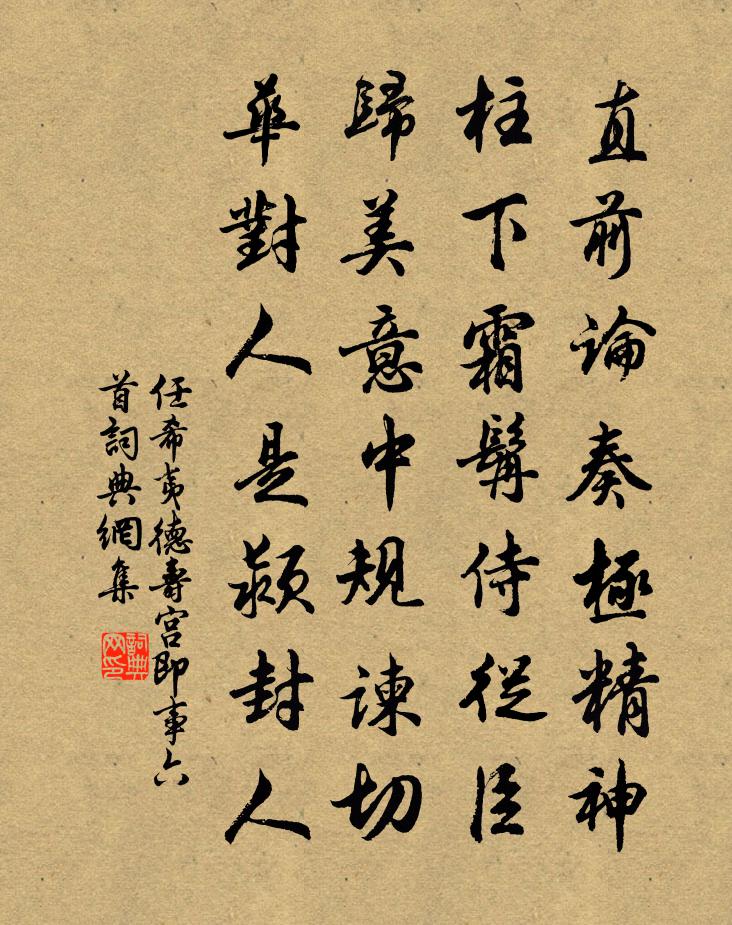 直前論奏極精神
柱下霜髯侍從臣
歸美意中規諫切
華對人是潁封人
任希夷德壽宮即事六
首詞典網集
詞典
网印